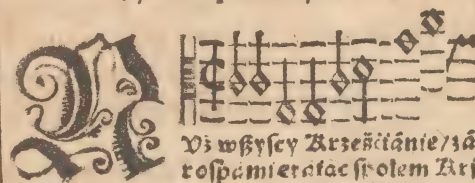 Vż wßyscy Krześćiánie/zá
rospámiętáiąc społem Kri